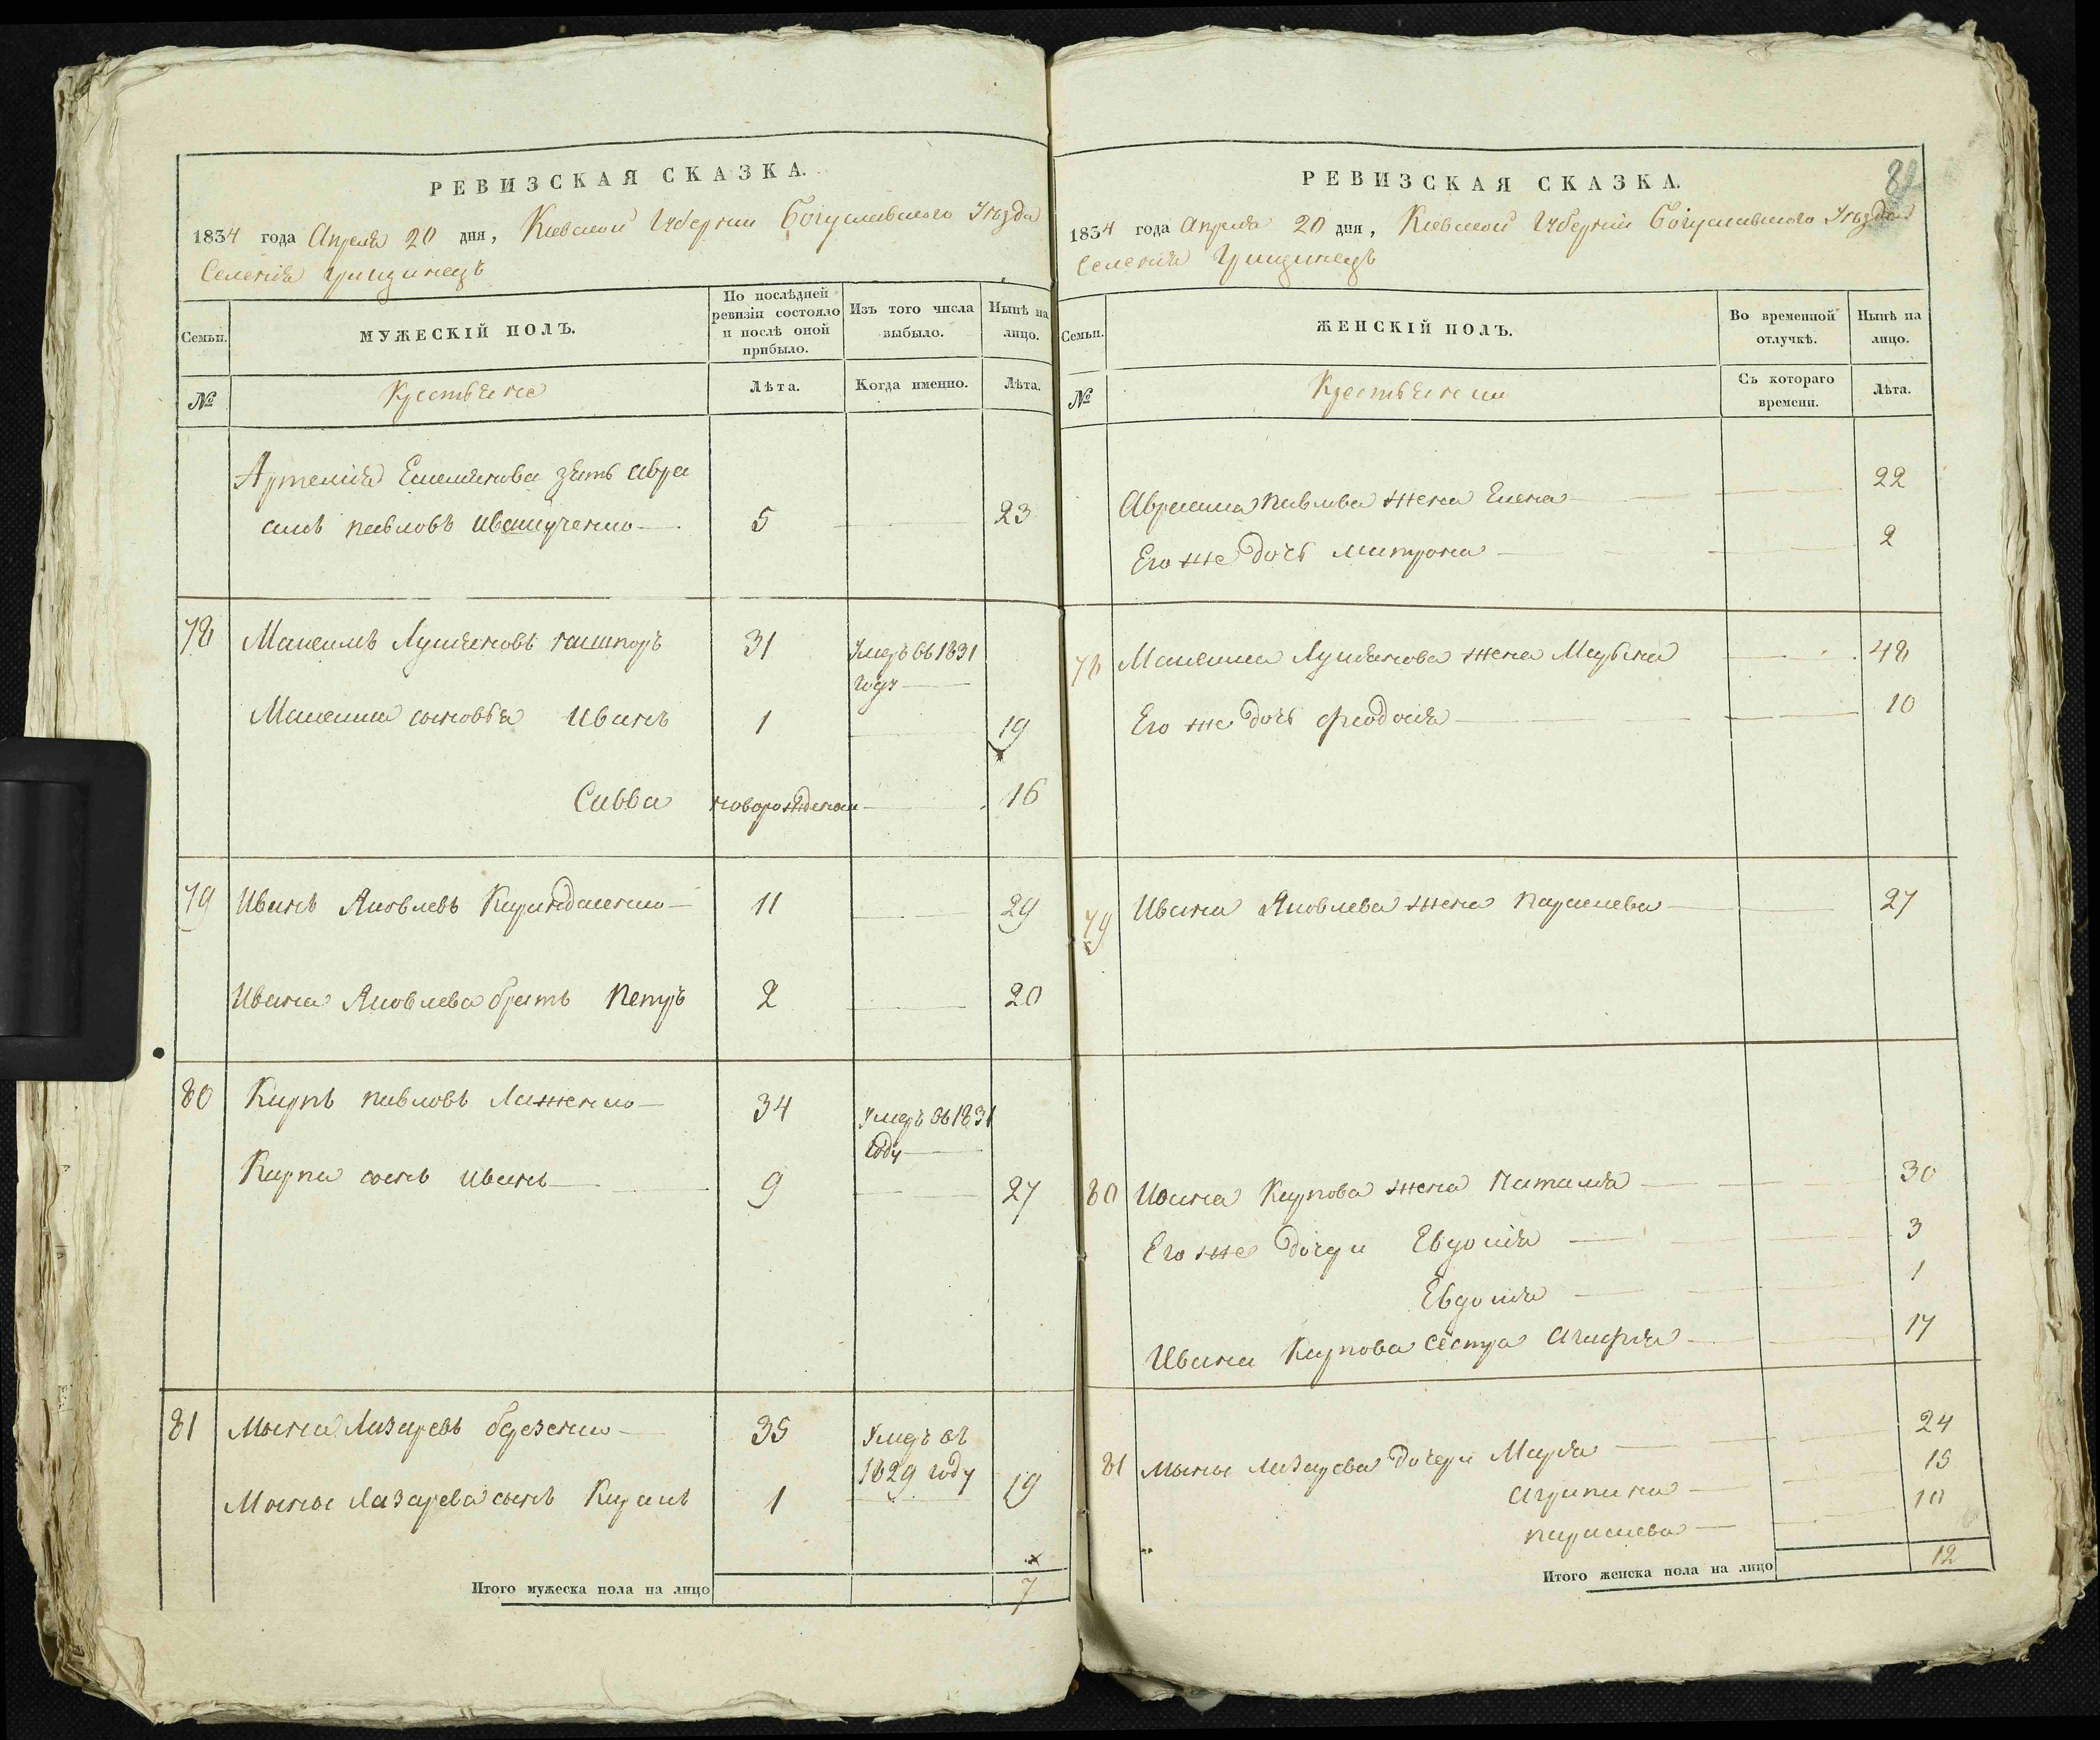 РЕВИЗСКАЯ СКАЗКА.
1834 года Апреля 20 дня, Киевской Губернии Богуславского Уезда
Селения Грищинецъ
Семьи.
МУЖЕСКІЙ ПОЛЪ.
По послѣдней ревизіи состояло и послѣ оной прибыло.
Изъ того числа выбыло.
Нынѣ на лицо.
№
Крестьяне
Лѣта.
Когда именно.
Лѣта.
Артемія Емельянова зять Авра
амъ Павловъ 5 23
78 Максимъ Лукьяновъ 31 Умеръ въ 1831
году
Максима сыновья Иванъ 1 19
Савва новорожденой 16
79 Иванъ Яковлевъ Карандашенко 11 29
Ивана Яковлева братъ Петръ 2 20
80 Карпъ Павловъ 34 Умеръ въ 1831
году
Карпа сынъ Иванъ 9 27
81 Мына Лазаревъ Березенко 35 Умеръ въ
1829 году
Мыны Лазарева сынъ 1 19
Итого мужеска пола на лицо 7
81
РЕВИЗСКАЯ СКАЗКА.
1834 года Апреля 20 дня, Киевской Губерніи Богуславского Уезда
Селенія Грищинецъ
Семьи.
ЖЕНСКІЙ ПОЛЪ.
Во временной отлучкѣ.
Нынѣ на лицо.
№
Крестьянки
Съ котораго времени.
Лѣта.
Авраама Павлова жена Елена 22
Его же дочь Матрона 2
78 Максима Лукьянова жена Марьяна 48
Его же дочь Феодосія 10
79 Ивана Яковлева жена Параскева 27
80 Ивана Карпова жена Наталія 30
Его же дочери Евдокія 3
Евдокія 1
Ивана Карпова сестра Агафія 17
81 Мыны Лазарева дочери Марія 24
Агрипина 15
Параскева 10
Итого женска пола на лицо 12